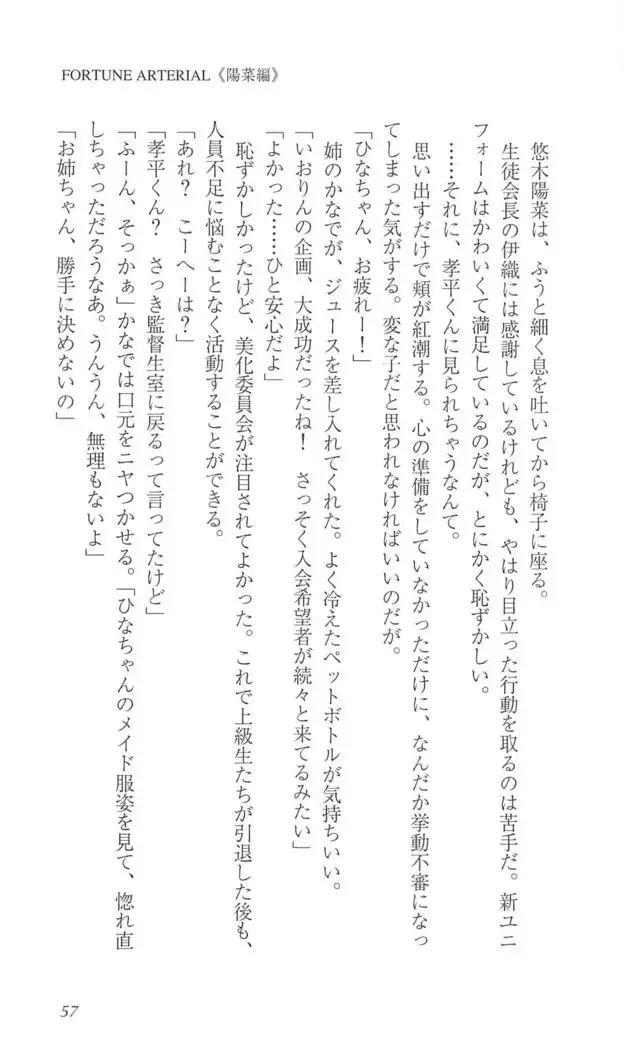 FORTUNE ARTERIAL《陽菜編》
悠木陽菜は、ふうと細く息を吐いてから椅子に座る。
生徒会長の伊織には感謝しているけれども、やはり目立った行動を取るのは苦手だ。新ユニ
フォームはかわいくて満足しているのだが、とにかく恥ずかしい。
……それに、孝平くんに見られちゃうなんて。
思い出すだけで頬が紅潮する。心の準備をしていなかっただけに、なんだか挙動不審になっ
てしまった気がする。変な子だと思われなければいいのだが。
「ひなちゃん、お疲れー！」
姉のかなでが、ジュースを差し入れてくれた。よく冷えたペットボトルが気持ちいい。
「いおりんの企画、大成功だったね！　さっそく入会希望者が続々と来てるみたい」
「よかった……ひと安心だよ」
恥ずかしかったけど、美化委員会が注目されてよかった。これで上級生たちが引退した後も、
人員不足に悩むことなく活動することができる。
「あれ？　こーへーは？」
「孝平くん？　さっき監督生室に戻るって言ってたけど」
「ふーん、そっかぁ」かなでは口元をニヤつかせる。「ひなちゃんのメイド服姿を見て、惚れ直
しちゃっただろうなあ。うんうん、無理もないよ」
「お姉ちゃん、勝手に決めないの」
57